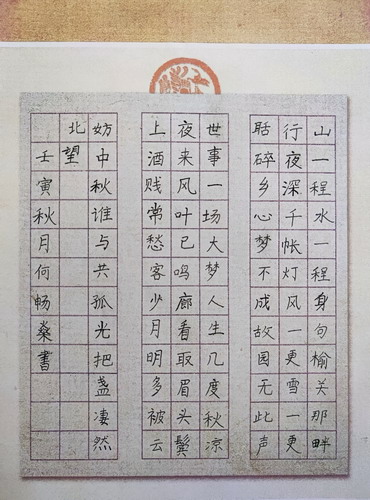 山一程水一程身句榆关那畔
行夜深千帐灯风一更雪一更
聒碎乡心梦不成故园无此声
世事一场大梦人生几度秋凉
夜来风叶已鸣廊看取眉头鬓
上酒贱常愁客少月明多被云
妨中秋谁与共孤光把盏凄然
北望
壬寅秋月何畅燊書